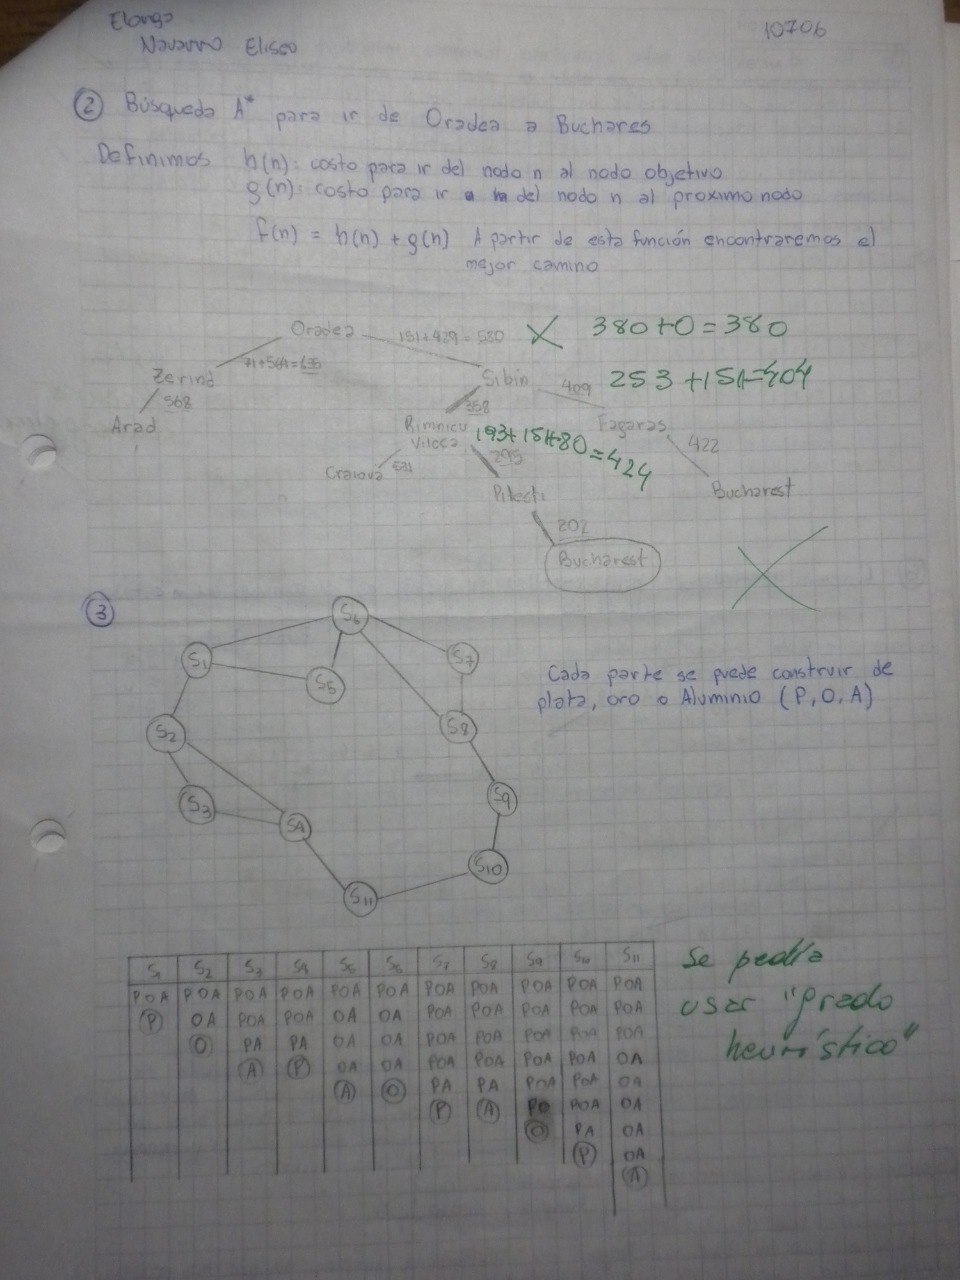 10706
Navarro Eliseo
② Búsqueda A* para ir de Oradea a Buchares
Definimos h(n): costo para ir del nodo n al nodo objetivo
g(n): costo para ir del nodo n al proximo nodo
f(n) = h(n) + g(n) A partir de esta función encontraremos el
mejor camino
Oradea 151+429=580 X 380+0=380
71+564=635
Zerind Sibiu 409 253+151=404
568 358
Arad Rimnicu Fagaras
Vilcea 193+151+80=424 422
Craiova Bucharest
Pitesti
202
Bucharest
③
S6
S1 S7
S5
Cada parte se puede construir de
plata, oro o Aluminio (P, O, A)
S2 S8
S3 S9
S4
S10
S11
S1 S2 S3 S4 S5 S6 S7 S8 S9 S10 S11
POA POA POA POA POA POA POA POA POA POA POA
P OA POA POA OA OA POA POA POA POA POA
O PA PA OA OA POA POA POA POA POA
A P OA OA POA POA POA POA OA
A O PA PA POA POA OA
P A PO POA OA
O PA OA
P OA
A
Se pedía
usar "grado
heurístico"